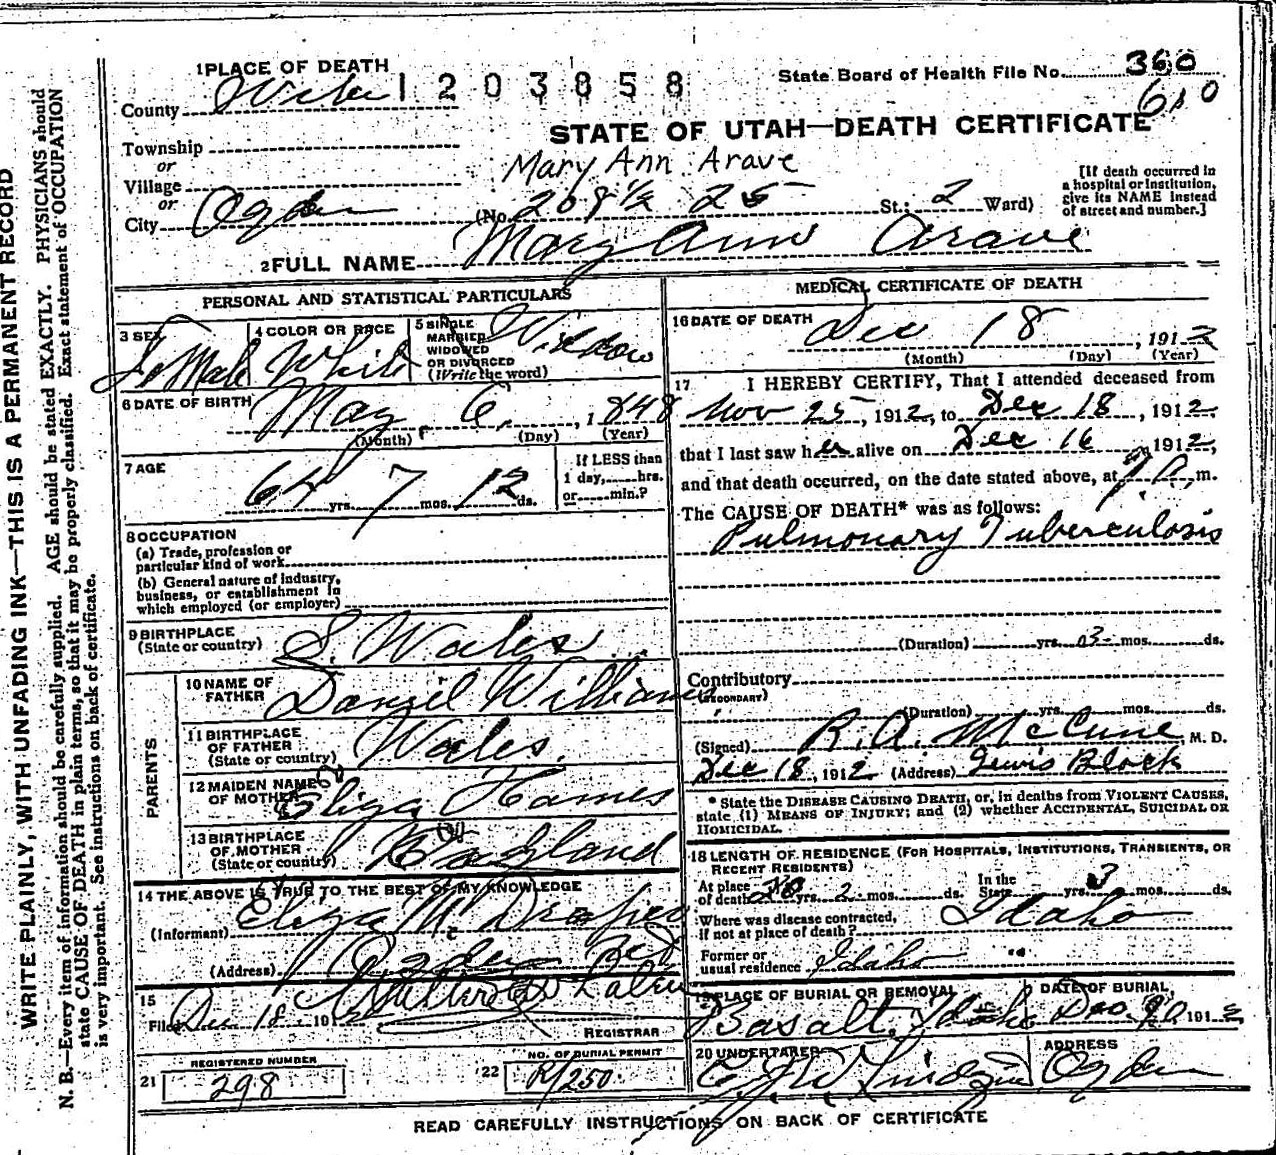 1 PLACE OF DEATH
1203858
State Board of Health File No. 360
610
County Weber
STATE OF UTAH—DEATH CERTIFICATE
Township
or
Village
or
City Ogden
Mary Ann Arave
(No. 208½ 25 St.; 2 Ward)
[If death occurred in
a hospital or institution,
give its NAME instead
of street and number.]
2 FULL NAME Mary Ann Arave
PERSONAL AND STATISTICAL PARTICULARS
3 SEX Female
4 COLOR OR RACE White
5 SINGLE
MARRIED
WIDOWED
OR DIVORCED
(Write the word)
Widdow
6 DATE OF BIRTH May 6, 1848
(Month) (Day) (Year)
7 AGE
64 yrs. 7 mos. 12 ds.
If LESS than
1 day, hrs.
or min.?
8 OCCUPATION
(a) Trade, profession or
particular kind of work
(b) General nature of industry,
business, or establishment in
which employed (or employer)
9 BIRTHPLACE
(State or country)
S. Wales
PARENTS
10 NAME OF
FATHER
Daniel Williams
11 BIRTHPLACE
OF FATHER
(State or country)
Wales.
12 MAIDEN NAME
OF MOTHER
Eliza Hames
13 BIRTHPLACE
OF MOTHER
(State or country)
England
14 THE ABOVE IS TRUE TO THE BEST OF MY KNOWLEDGE
(Informant) Eliza M. Draper
(Address) Ogden
15
Filed Dec 18 1912
REGISTRAR
REGISTERED NUMBER
21 298
NO. OF BURIAL PERMIT
22 R/250
MEDICAL CERTIFICATE OF DEATH
16 DATE OF DEATH Dec 18, 1912
(Month) (Day) (Year)
17 I HEREBY CERTIFY, That I attended deceased from
Nov 25, 1912, to Dec 18, 1912.
that I last saw her alive on Dec 16, 1912,
and that death occurred, on the date stated above, at m.
The CAUSE OF DEATH* was as follows:
Pulmonary Tuberculosis
(Duration) yrs. 3 mos. ds.
Contributory
(SECONDARY)
(Duration) yrs. mos. ds.
(Signed) R. A. McCune M. D.
Dec 18, 1912 (Address) Lewis Block
* State the DISEASE CAUSING DEATH, or, in deaths from VIOLENT CAUSES,
state (1) MEANS OF INJURY; and (2) whether ACCIDENTAL, SUICIDAL OR
HOMICIDAL.
18 LENGTH OF RESIDENCE (FOR HOSPITALS, INSTITUTIONS, TRANSIENTS, OR
RECENT RESIDENTS)
At place
of death yrs. 2 mos. ds.
In the
State yrs. 3 mos. ds.
Where was disease contracted,
if not at place of death? Idaho
Former or
usual residence Idaho "
19 PLACE OF BURIAL OR REMOVAL
Basalt, Idaho
DATE OF BURIAL,
Dec. 20, 1912,
20 UNDERTAKER
ADDRESS
Ogden
READ CAREFULLY INSTRUCTIONS ON BACK OF CERTIFICATE
WRITE PLAINLY, WITH UNFADING INK—THIS IS A PERMANENT RECORD
N. B.—Every item of information should be carefully supplied. AGE should be stated EXACTLY. PHYSICIANS should
state CAUSE OF DEATH in plain terms, so that it may be properly classified. Exact statement of OCCUPATION
is very important. See instructions on back of certificate.